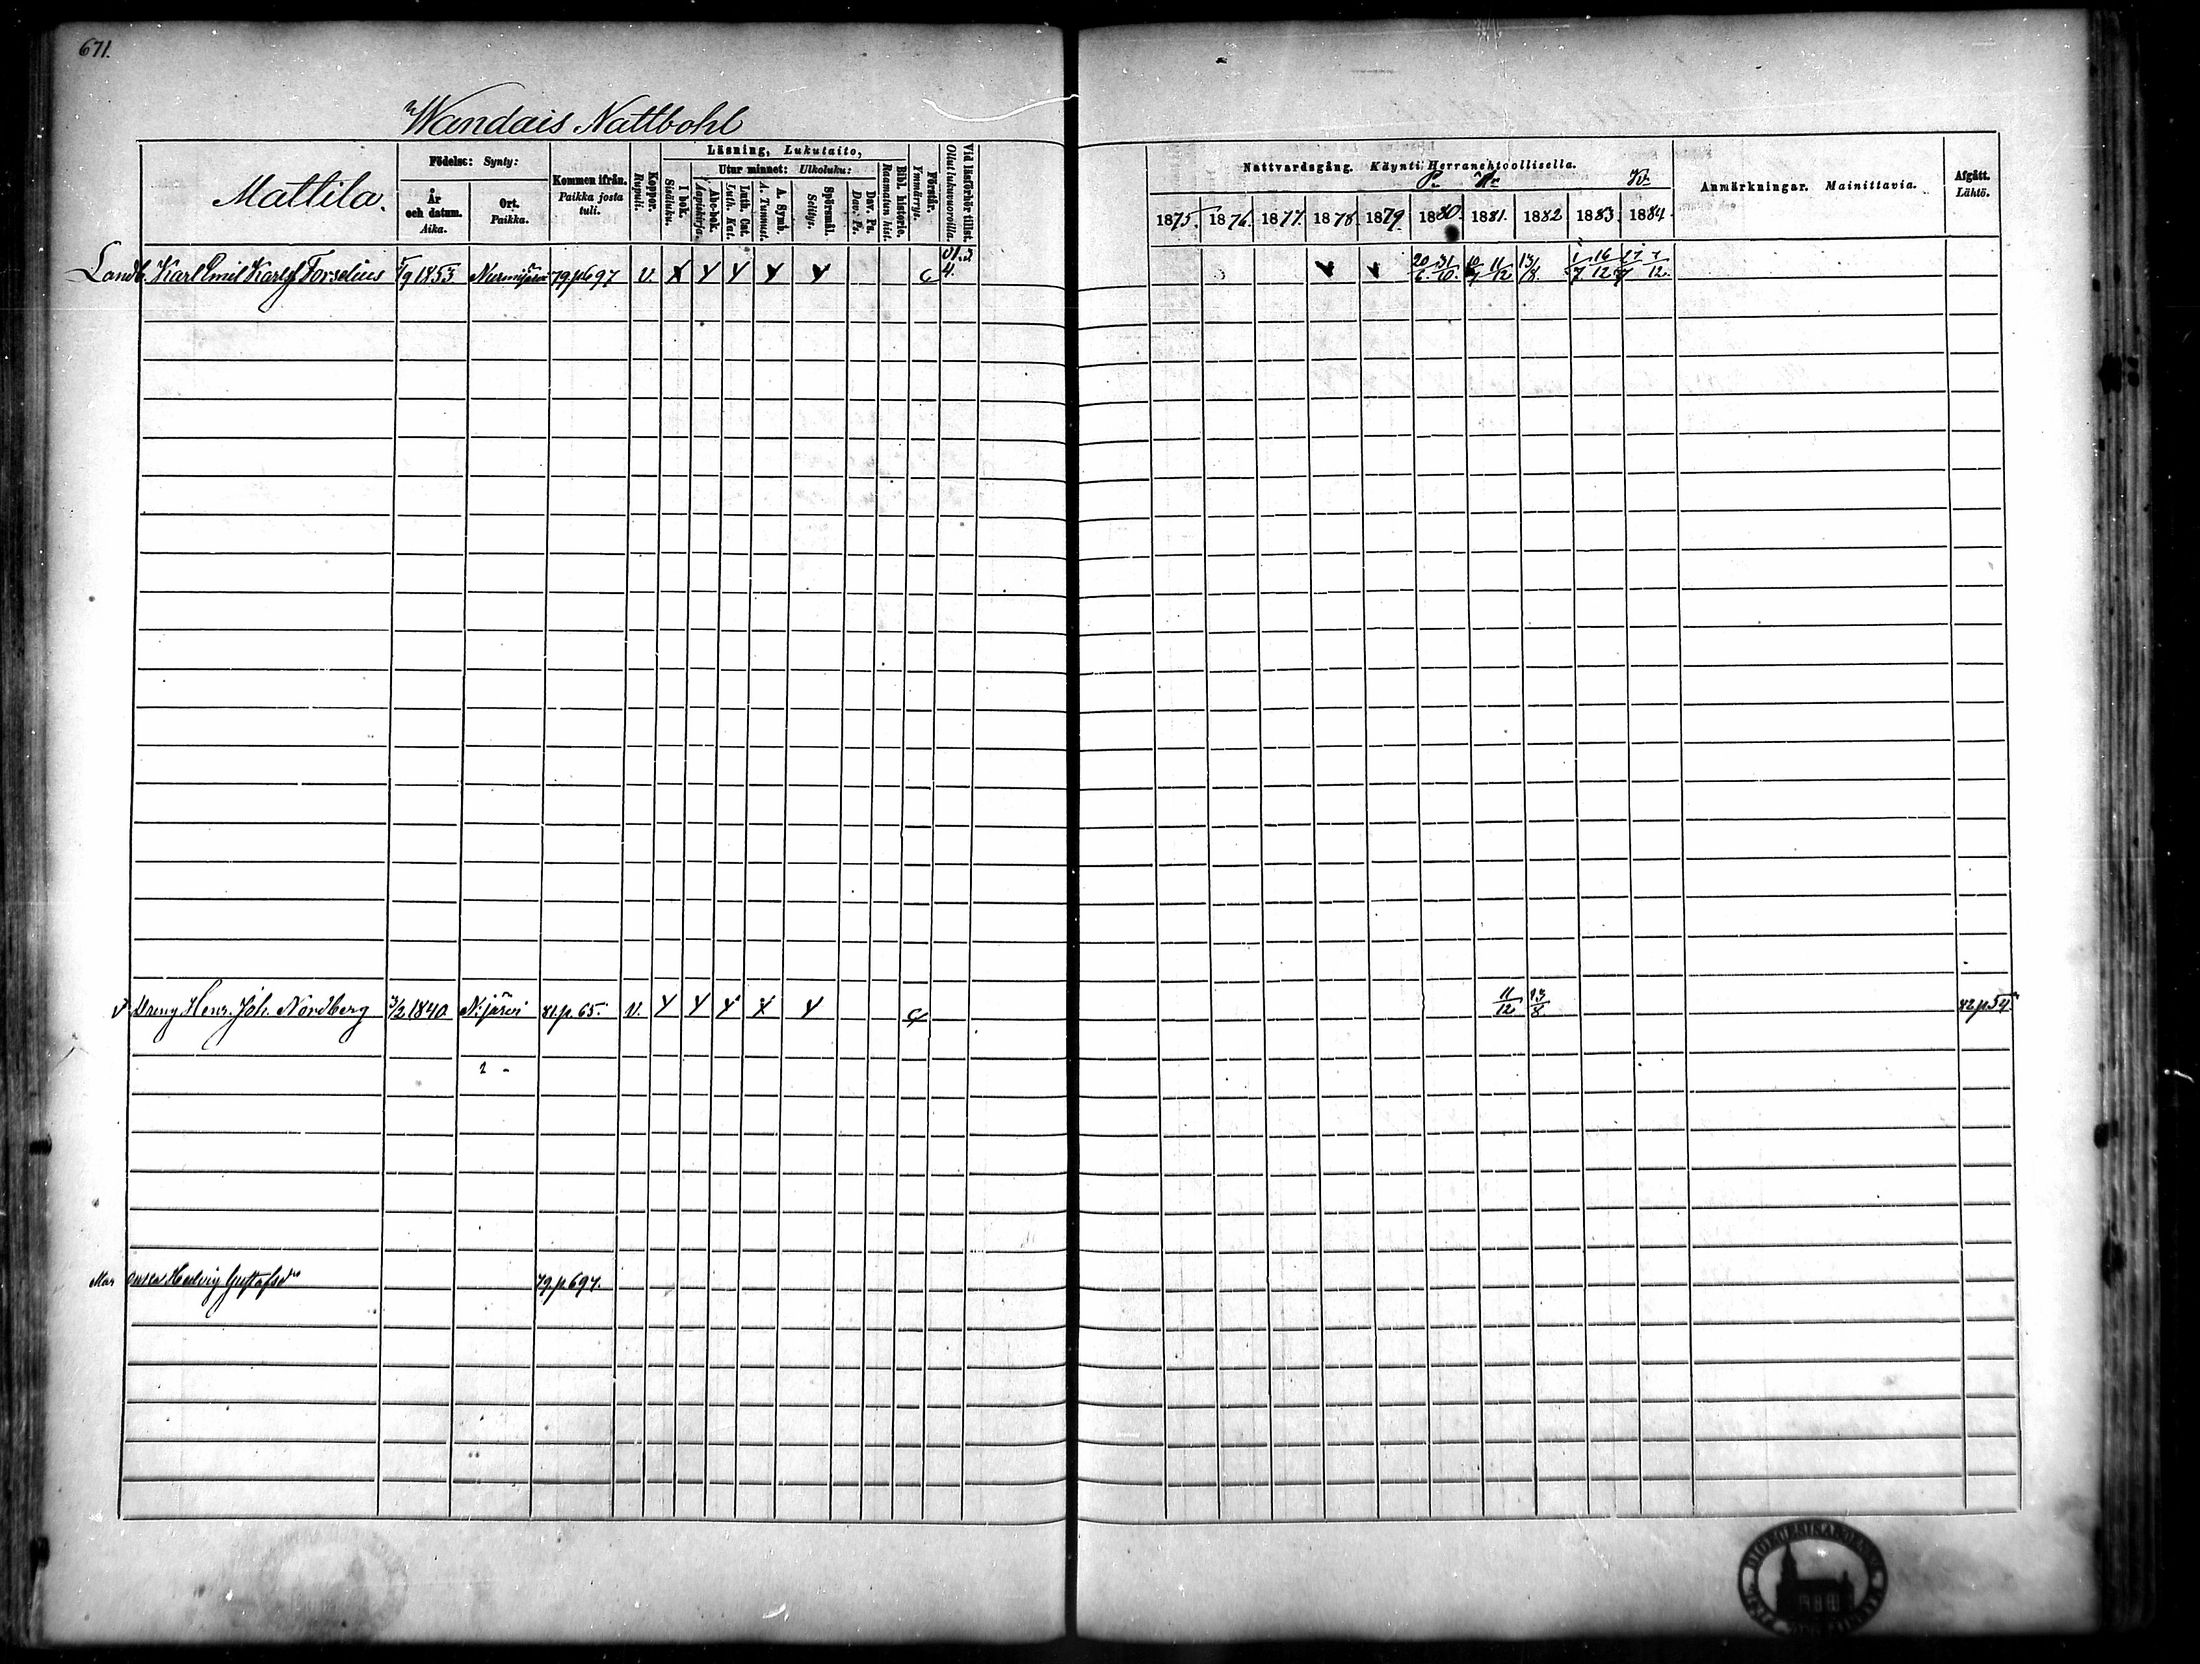 671.
Wandais Nattbohl
Mattila.
Födelse: Synty:
År och datum. Aika.
Ort. Paikka.
Kommen ifrån. Paikka josta tuli.
Koppor. Rupuli.
Läsning, Lukutaito,
I bok. Sisäluku.
Utur minnet: Ulkoluku:
Abc-bok. Aapiskirja.
Luth. Cat. Luth. Kat.
A. Symb. A. Tunnust.
Spörsmål. Selitys.
Dav. Ps. Dav. Ps.
Bibl. historie. Raamatun hist.
Förstår. Ymmärrys.
Vid läsförhör tillst. Ollut lukuvuoroilla.
Nattvardsgång. Käynti Herranehtoollisella.
1875. 1876. 1877. 1878. 1879. 1880. 1881. 1882 1883. 1884.
Anmärkningar. Mainittavia.
Afgått. Lähtö.
Landb. Karl Emil Karlsf Forselius 5/9 1853 Nurmijärvi 79.p697 V. 20/6 31/10 11/12 13/8 1/7 16/12 7/12
Dreng Henr. Joh. Nordberg 3/2 1840 N:järvi 81.p.65. V. 11/12 13/8 82.p.54.
Hedvig Gustafsdr 79.p697.